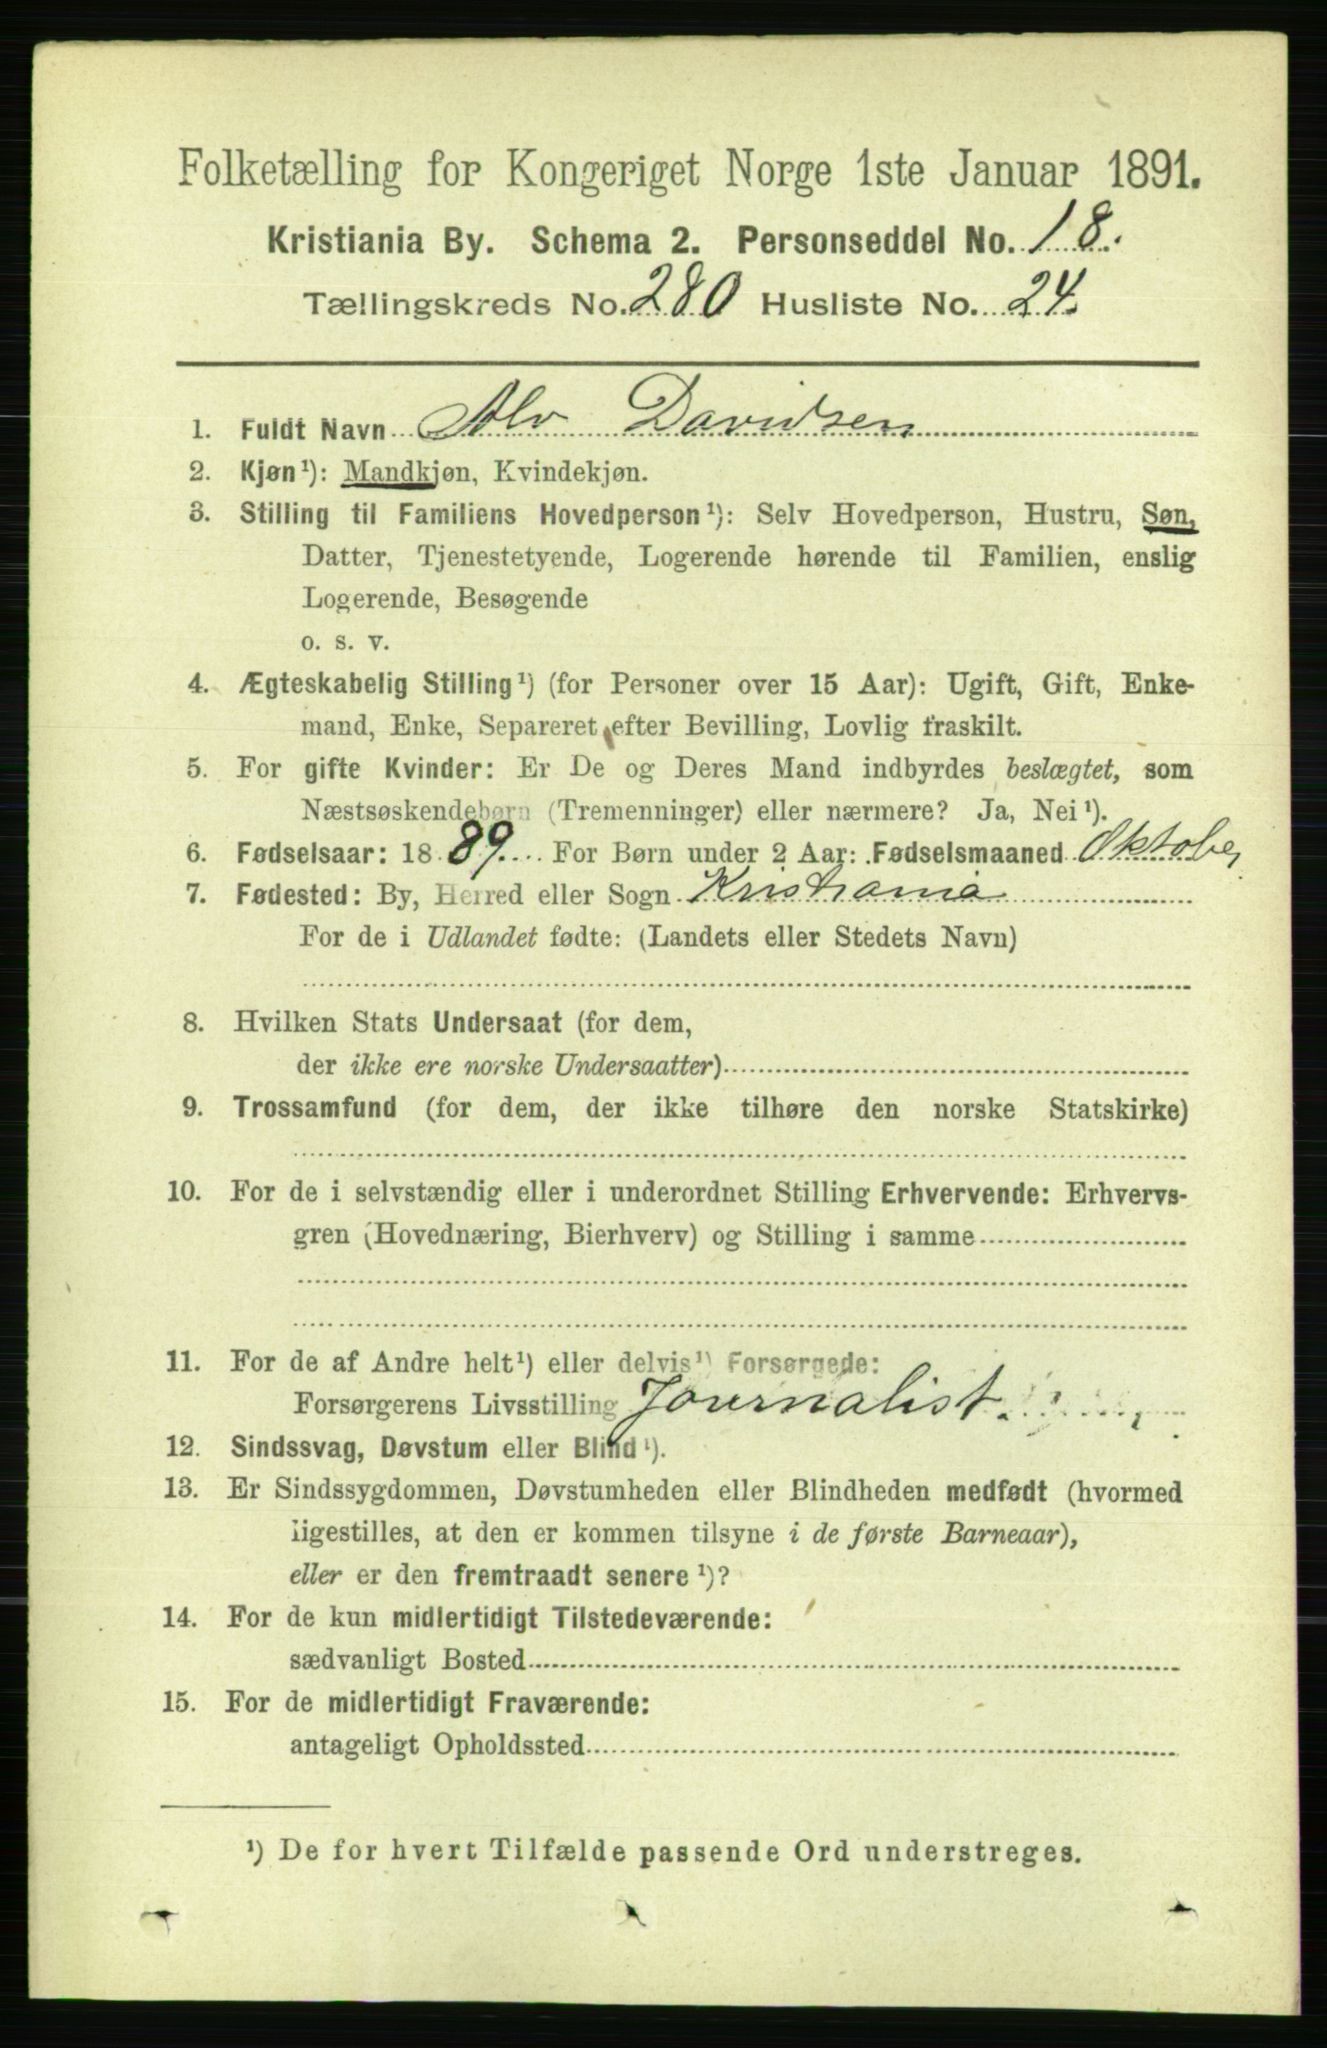 Folketælling for Kongeriget Norge 1ste Januar 1891.
Kristiania By. Schema 2. Personseddel No. 18.
Tællingskreds No. 280 Husliste No. 24.
1. Fuldt Navn Alv Davidsen
2. Kjøn¹): Mandkjøn, Kvindekjøn.
3. Stilling til Familiens Hovedperson¹): Selv Hovedperson, Hustru, Søn,
Datter, Tjenestetyende, Logerende hørende til Familien, enslig
Logerende, Besøgende
o. s. v.
4. Ægteskabelig Stilling¹) (for Personer over 15 Aar): Ugift, Gift, Enke-
mand, Enke, Separeret efter Bevilling, Lovlig fraskilt.
5. For gifte Kvinder: Er De og Deres Mand indbyrdes beslægtet, som
Næstsøskendebørn (Tremenninger) eller nærmere? Ja, Nei¹).
6. Fødselsaar: 1889. For Børn under 2 Aar: Fødselsmaaned Oktober
7. Fødested: By, Herred eller Sogn Kristiania
For de i Udlandet fødte: (Landets eller Stedets Navn)
8. Hvilken Stats Undersaat (for dem,
der ikke ere norske Undersaatter)
9. Trossamfund (for dem, der ikke tilhøre den norske Statskirke)
10. For de i selvstændig eller i underordnet Stilling Erhvervende: Erhvervs-
gren (Hovednæring, Bierhverv) og Stilling i samme
11. For de af Andre helt¹) eller delvis¹) Forsørgede:
Forsørgerens Livsstilling Journalist.
12. Sindssvag, Døvstum eller Blind¹).
13. Er Sindssygdommen, Døvstumheden eller Blindheden medfødt (hvormed
ligestilles, at den er kommen tilsyne i de første Barneaar),
eller er den fremtraadt senere¹)?
14. For de kun midlertidigt Tilstedeværende:
sædvanligt Bosted
15. For de midlertidigt Fraværende:
antageligt Opholdssted
¹) De for hvert Tilfælde passende Ord understreges.